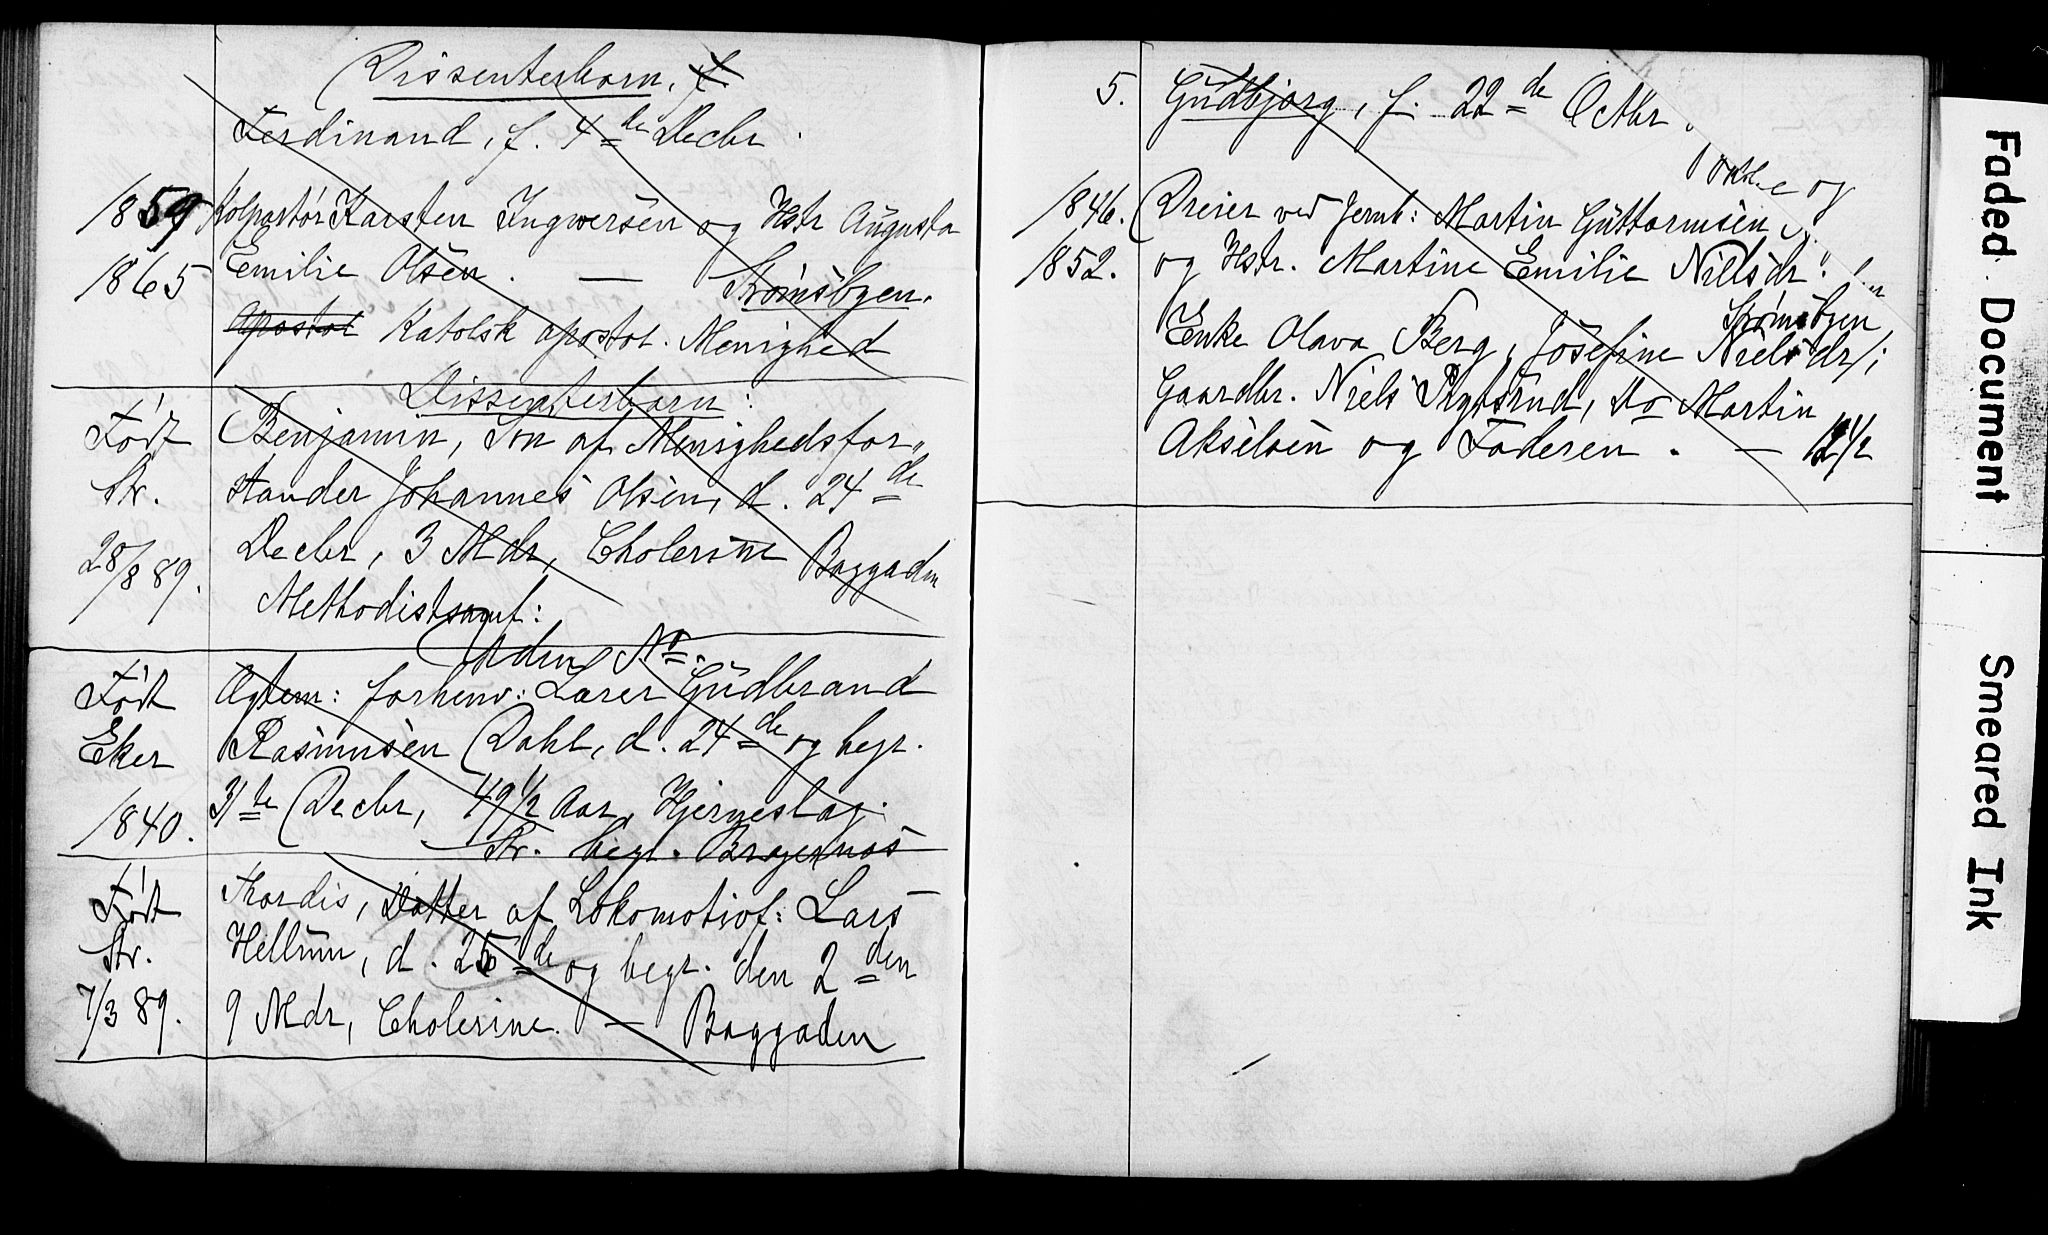 Dissenterbarn.
Ferdinand, f. 4de Decbr.
1859 Kolportör Karsten Ingwersen og Hstr Augusta
1865 Emilie Olsen. — Strømsbyen.
Apostol Katolsk apostol. Menighed
Dissenterbarn:
Født Benjamin, Søn af Menighedsfor-
Str. stander Johannes Olsen, d. 24de
28/8 89. Decbr, 3 Mdr, Cholerine Baggaden
Methodistsamf:
Uden No.
Født Ægtem: forhenv: Lærer Gudbrand
Eker Rasmusen Dahl, d. 24de og begr.
1840. 31te Decbr, 49 1/2 Aar, Hjerneslag.
Str. begr. Bragernæs
Født Thordis, Datter af Lokomotivf: Lars
Str. Hellum, d. 25de og begr. den 2den
7/3 89. 9 Mdr, Cholerine. — Baggaden
5. Gudbjørg, f. 22de Octbr.
og
1846. Dreier ved Jernb: Martin Guttormsen
1852. og Hstr. Martine Emilie Nielsdr.
Strømsbyen
Enke Olava Berg, Josefine Nielsdr;
Gaardbr. Niels Rytsrud, Do Martin
Akselsen og Faderen. — 12 1/2
Faded Document
Smeared Ink